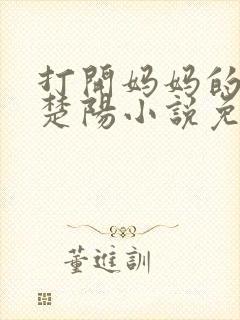 打開妈妈的
楚陽小説免
董進訓